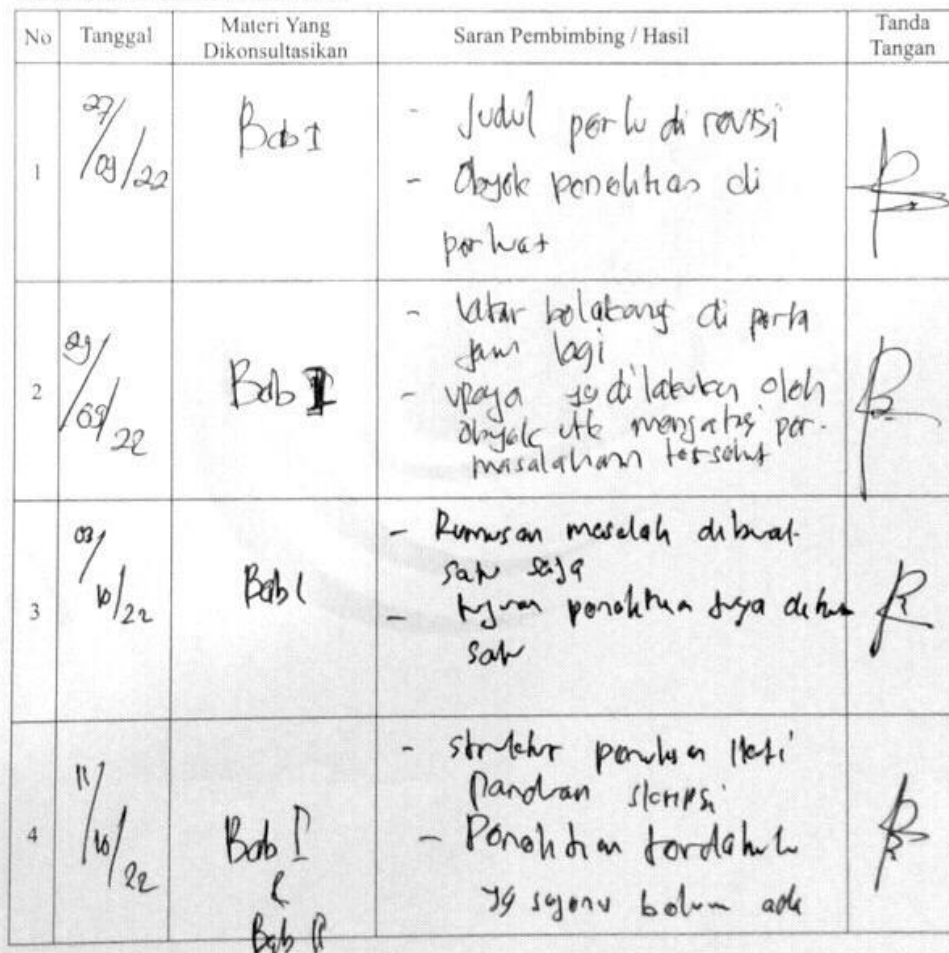 No Tanggal Materi Yang Dikonsultasikan Saran Pembimbing / Hasil Tanda Tangan
1 27/09/22 Bab I
- Judul perlu di revisi
- Obyek penelitian di
perkuat
2 29/09/22 Bab I
- latar belakang di perta
jam lagi
- upaya yg dilakukan oleh
obyek utk mengatasi per-
masalahan tersebut
3 03/10/22 Bab I
- Rumusan masalah dibuat
satu saja
- tujuan penelitian juga
satu
4 11/10/22 Bab I
&
Bab II
- struktur penulisan
Panduan skripsi
- Penelitian terdahulu
yg belum ada